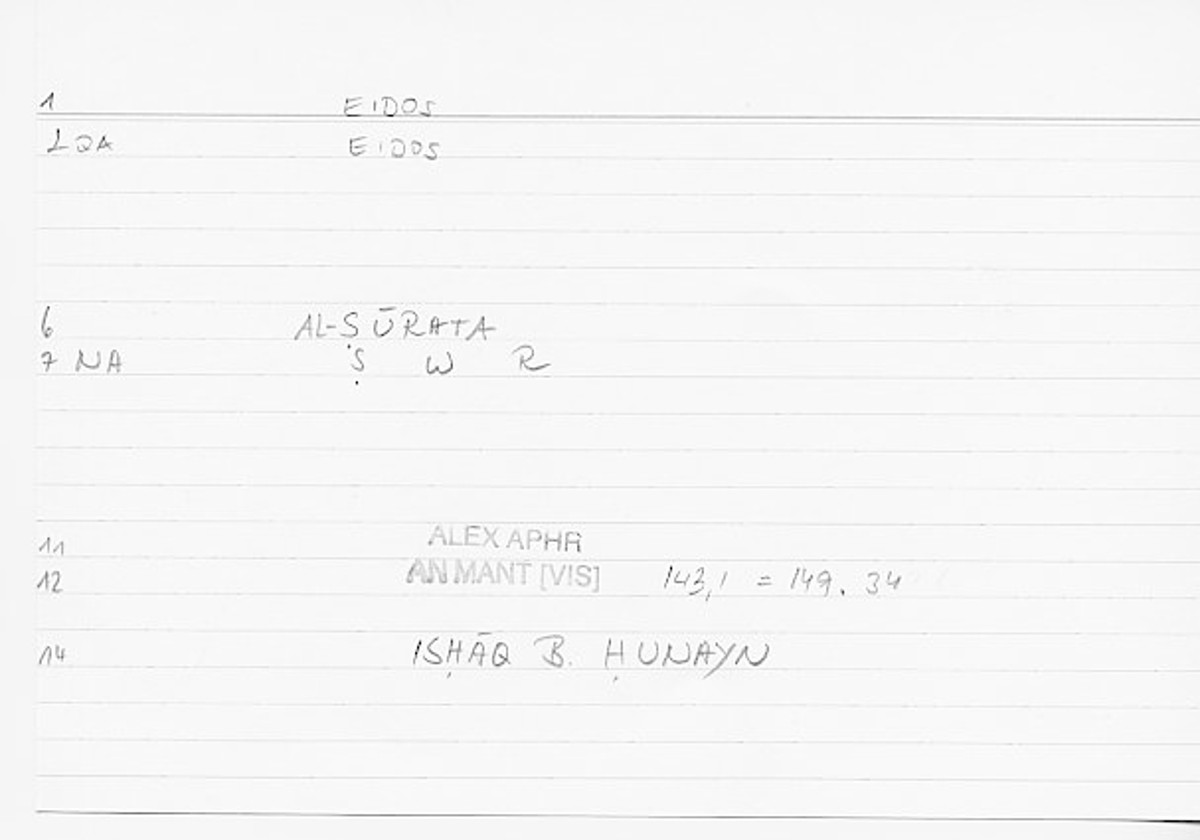 1 EIDOS
2 OA EIDOS
6 AL-ṢŪRATA
7 NA Ṣ W R
11 ALEX APHR
12 AN MANT [VIS] 143,1 = 149. 34
14 ISḤĀQ B. ḤUNAYN